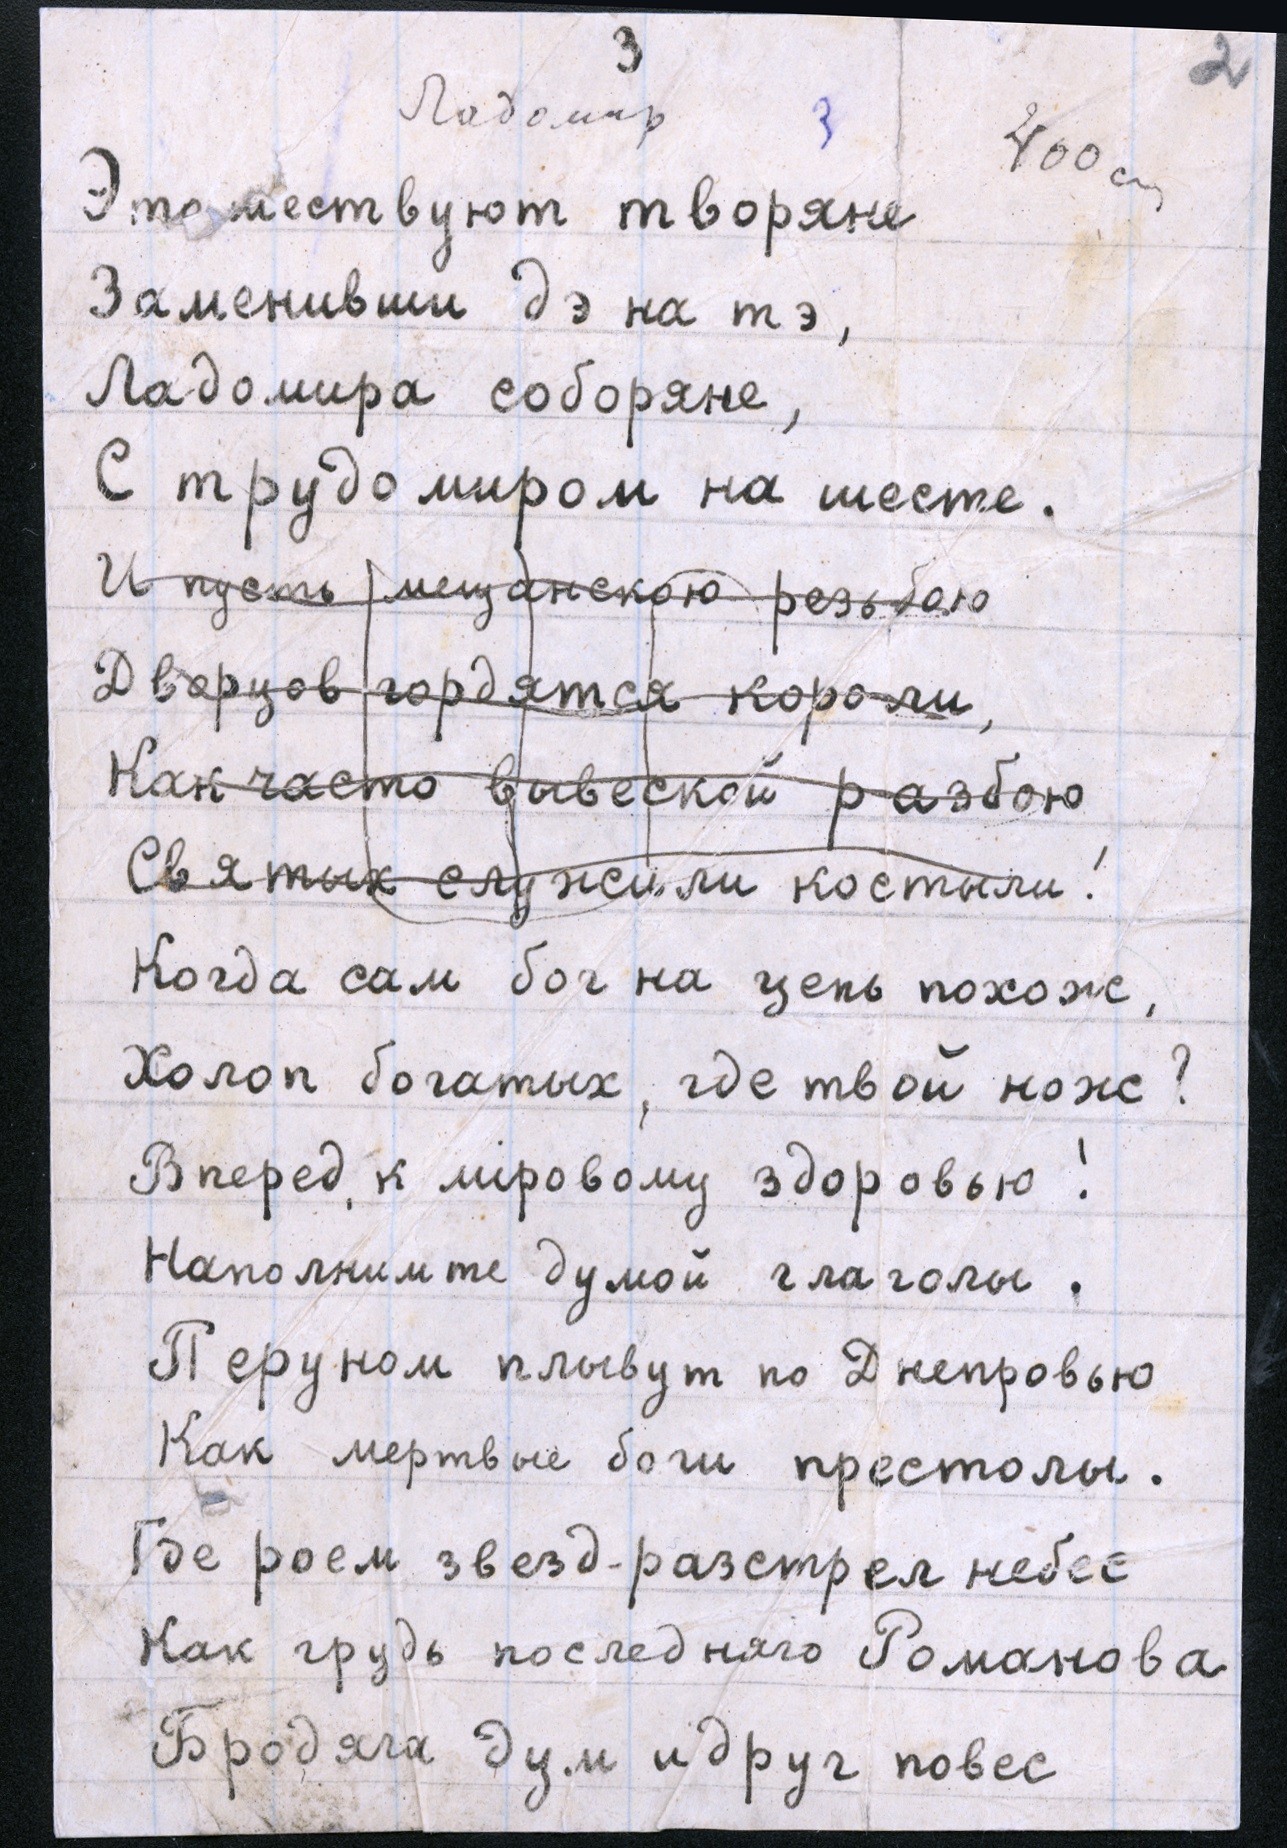 3
2
Ладомир
3
400 ст
Это шествуют творяне
Заменивши дэ на тэ,
Ладомира соборяне,
С трудомиром на шесте.
И пусть мещанскою резьбою
Дворцов гордятся короли,
Как часто вывеской разбою
Святых служили костыли!
Когда сам бог на цепь похож,
Холоп богатых, где твой нож?
Вперед, к міровому здоровью!
Наполнимте думой глаголы.
Перуном плывут по Днепровью
Как мертвые боги престолы.
Где роем звезд-разстрел небес
Как грудь последняго Романова
Бродяга дум и друг повес